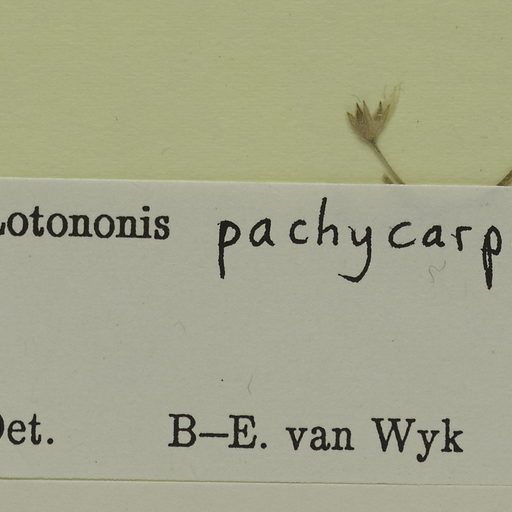 Lotononis pachycarp
Det. B–E. van Wyk